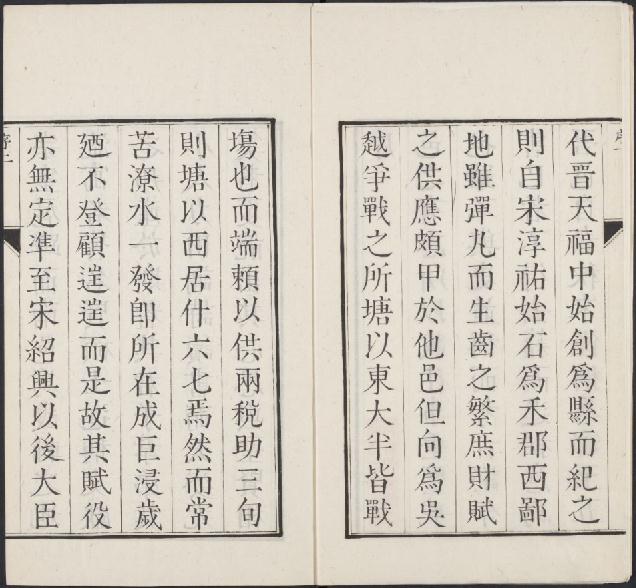 代晋天福中始創爲縣而紀之
則自宋淳祐始石爲禾郡西鄙
地雖彈丸而生齒之繁庶財賦
之供應頗甲於他邑但向爲吳
越爭戰之所塘以東大半皆戰
塲也而端賴以供兩稅助三旬
則塘以西居什六七焉然而常
苦潦水一發卽所在成巨浸歲
廼不登顧𨓏𨓏而是故其賦役
亦無定凖至宋紹興以後大臣
序二